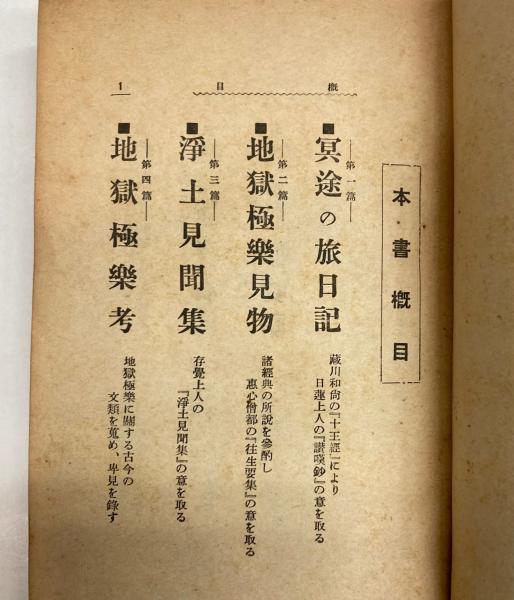 概目 1
本書概目
第一篇
冥途の旅日記
藏川和尙の『十王經』により
日蓮上人の『讃嘆鈔』の意を取る
第二篇
地獄極樂見物
諸經典の所說を參酌し
惠心僧都の『往生要集』の意を取る
第三篇
淨土見聞集
存覺上人の
『淨土見聞集』の意を取る
第四篇
地獄極樂考
地獄極樂に關する古今の
文類を蒐め、卑見を錄す